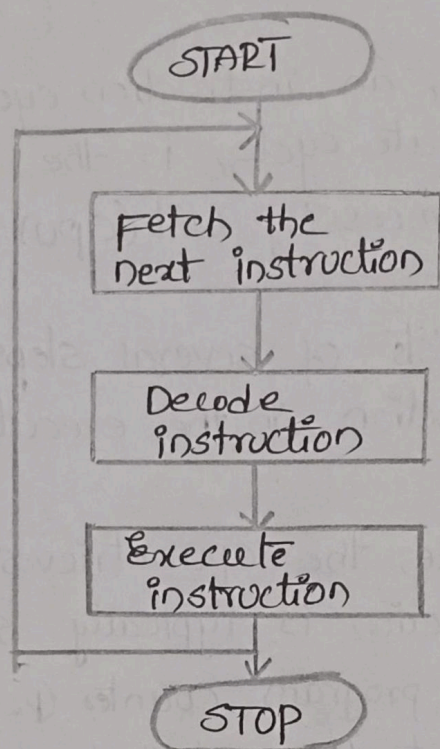 START
Fetch the
next instruction
Decode
instruction
Execute
instruction
STOP